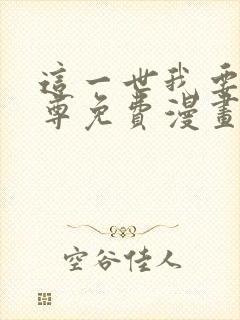 這一世我要
尊免費漫畫
空谷佳人